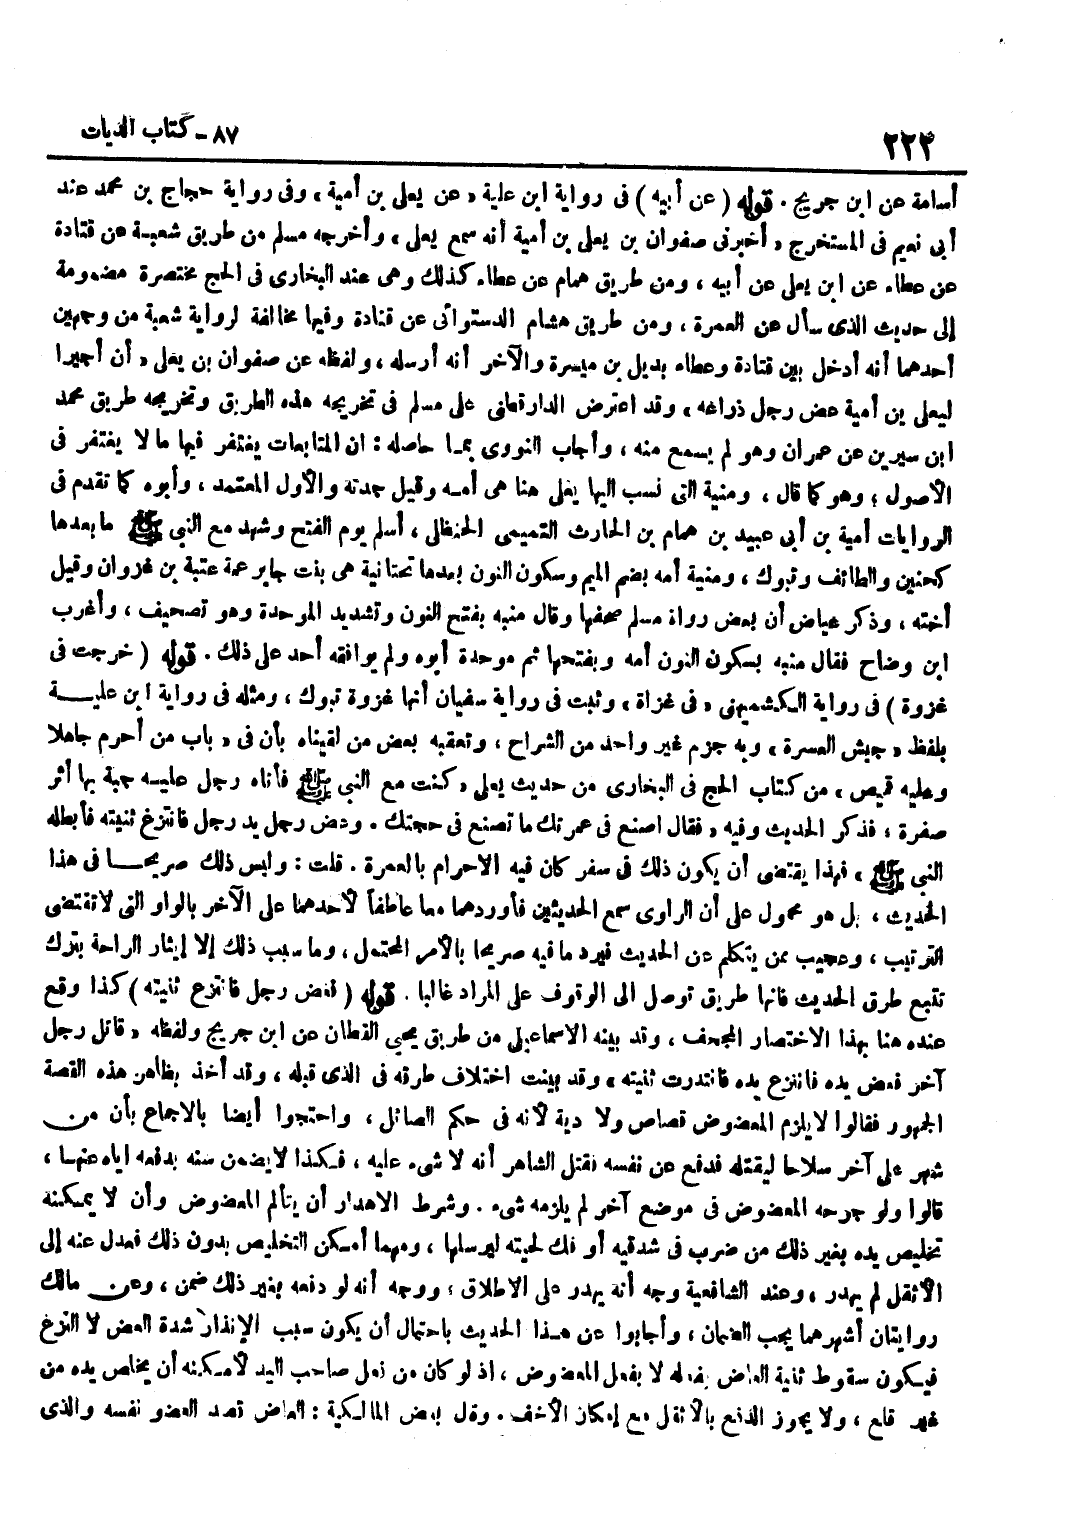 ٢٢٢
٨٧ - كتاب الديات
أسامة عن ابن جريج . قوله ( عن أبيه ) فى رواية ابن علية « عن يعلى بن أمية ، وفى رواية حجاج بن محمد عند
أبى نعيم فى المستخرج « أخبرنى صفوان بن يعلى بن أمية أنه سمع يعلى » وأخرجه مسلم من طريق شعبة عن قتادة
عن عطاء عن ابن يعلى عن أبيه ، ومن طريق همام عن عطاء كذلك وهى عند البخارى فى الحج مختصرة مضمومة
إلى حديث الذى سأل عن العمرة ، ومن طريق هشام الدستوائى عن قتادة وفيها مخالفة لرواية شعبة من وجهين
أحدهما أنه أدخل بين قتادة وعطاء بديل بن ميسرة والآخر أنه أرسله ، ولفظه عن صفوان بن يعلى « أن أجيرا
ليعلى بن أمية عض رجل ذراعه » وقد اعترض الدارقطنى على مسلم فى تخريجه هذه الطريق وتخريجه طريق محمد
ابن سيرين عن عمران وهو لم يسمع منه ، وأجاب النووى بما حاصله : ان المتابعات يغتفر فيها ما لا يغتفر فى
الأصول ؛ وهو كما قال ، ومنية التى نسب اليها يعلى هنا هى أمه وقيل جدته والأول المعتمد ، وأبوه كما تقدم فى
الروايات أمية بن أبى عبيد بن همام بن الحارث التميمى الحنظلى ، أسلم يوم الفتح وشهد مع النبى ﷺ ما بعدها
كحنين والطائف وتبوك ، ومنية أمه بضم الميم وسكون النون بعدها تحتانية هى بنت جابر عمة عتبة بن غزوان وقيل
أخته ، وذكر عياض أن بعض رواة مسلم صحفها وقال منبه بفتح النون وتشديد الموحدة وهو تصحيف ، وأغرب
ابن وضاح فقال منبه بسكون النون أمه وبفتحها ثم موحدة أبوه ولم يوافقه أحد على ذلك . قوله ( خرجت فى
غزوة ) فى رواية الكشميهنى « فى غزاة » وثبت فى رواية سفيان أنها غزوة تبوك ، ومثله فى رواية ابن علية
بلفظ « جيش العسرة » وبه جزم غير واحد من الشراح ، وتعقبه بعض من لقيناه بأن فى « باب من أحرم جاهلا
وعليه قميص » من كتاب الحج فى البخارى من حديث يعلى « كنت مع النبى ﷺ فأتاه رجل عليه جبة بها أثر
صفرة ، فذكر الحديث وفيه « فقال اصنع فى عمرتك ما تصنع فى حجتك . وعض رجل يد رجل فانتزع ثنيته فأبطله
النبى ﷺ » فهذا يقتضى أن يكون ذلك فى سفر كان فيه الاحرام بالعمرة . قلت : وليس ذلك صريحا فى هذا
الحديث ، بل هو محمول على أن الراوى سمع الحديثين فأوردهما معا عاطفاً لأحدهما على الآخر بالواو التى لا تقتضى
الترتيب ، وعجيب ممن يتكلم عن الحديث فيرد ما فيه صريحا بالأمر المحتمل ، وما سبب ذلك إلا إيثار الراحة بترك
تتبع طرق الحديث فانها طريق توصل الى الوقوف على المراد غالبا . قوله ( فعض رجل فانتزع ثنيته ) كذا وقع
عنده هنا بهذا الاختصار المجحف ، وقد بينه الاسماعيلى من طريق يحيى القطان عن ابن جريج ولفظه « قاتل رجل
آخر فعض يده فانتزع يده فانتدرت ثنيته » وقد بينت اختلاف طرقه فى الذى قبله ، وقد أخذ بظاهر هذه القصة
الجمهور فقالوا لا يلزم المعضوض قصاص ولا دية لأنه فى حكم الصائل ، واحتجوا أيضا بالاجماع بأن من
شهر على آخر سلاحا ليقتله فدفع عن نفسه فقتل الشاهر أنه لا شىء عليه ، فكذا لا يضمن سنه بدفعه اياه عنها ،
قالوا ولو جرحه المعضوض فى موضع آخر لم يلزمه شىء . وشرط الاهدار أن يتألم المعضوض وأن لا يمكنه
تخليص يده بغير ذلك من ضرب فى شدقيه أو فك لحيته ليرسلها ، ومهما أمكن التخليص بدون ذلك فعدل عنه إلى
الأثقل لم يهدر ، وعند الشافعية وجه أنه يهدر على الاطلاق ؛ ووجه أنه لو دفعه بغير ذلك ضمن ، وعن مالك
روايتان أشهرهما يجب الضمان ، وأجابوا عن هذا الحديث باحتمال أن يكون سبب الإنذار شدة العض لا النزع
فيكون سقوط ثنية العاض بفعله لا بفعل المعضوض ، اذ لو كان من فعل صاحب اليد لأمكنه أن يخلص يده من
غير قلع ، ولا يجوز الدفع بالأثقل مع إمكان الأخف . وقال بعض المالكية : العاض قصد العضو نفسه والذى